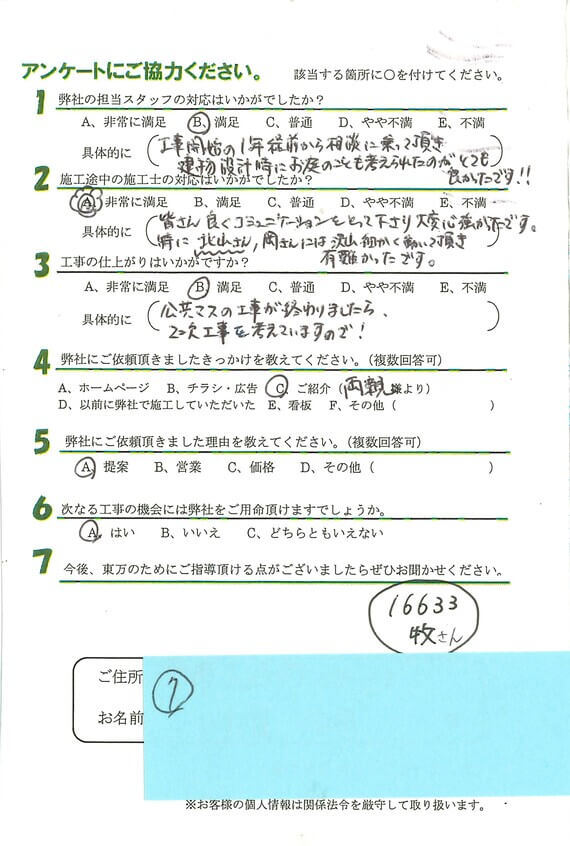 アンケートにご協力ください。 該当する箇所に○を付けてください。
1 弊社の担当スタッフの対応はいかがでしたか？
A、非常に満足 B、満足 C、普通 D、やや不満 E、不満
具体的に (工事開始の1年程前から相談に乗って頂き
建物設計時にお庭のことも考えられたのがとても
良かったです!!)
2 施工途中の施工士の対応はいかがでしたか？
A、非常に満足 B、満足 C、普通 D、やや不満 E、不満
具体的に (皆さん良くコミュニケーションをとって下さり大変心強かったです。
特に北山さん,岡さんには沢山細かく動いて頂き
有難かったです。)
3 工事の仕上がりはいかがですか？
A、非常に満足 B、満足 C、普通 D、やや不満 E、不満
具体的に (公共マスの工事が終わりましたら、
2次工事を考えていますので!)
4 弊社にご依頼頂きましたきっかけを教えてください。（複数回答可）
A、ホームページ B、チラシ・広告 C、ご紹介（両親様より）
D、以前に弊社で施工していただいた E、看板 F、その他（ ）
5 弊社にご依頼頂きました理由を教えてください。（複数回答可）
A、提案 B、営業 C、価格 D、その他（ ）
6 次なる工事の機会には弊社をご用命頂けますでしょうか。
A、はい B、いいえ C、どちらともいえない
7 今後、東万のためにご指導頂ける点がございましたらぜひお聞かせください。
16633
牧さん
ご住所
7
お名前
※お客様の個人情報は関係法令を厳守して取り扱います。